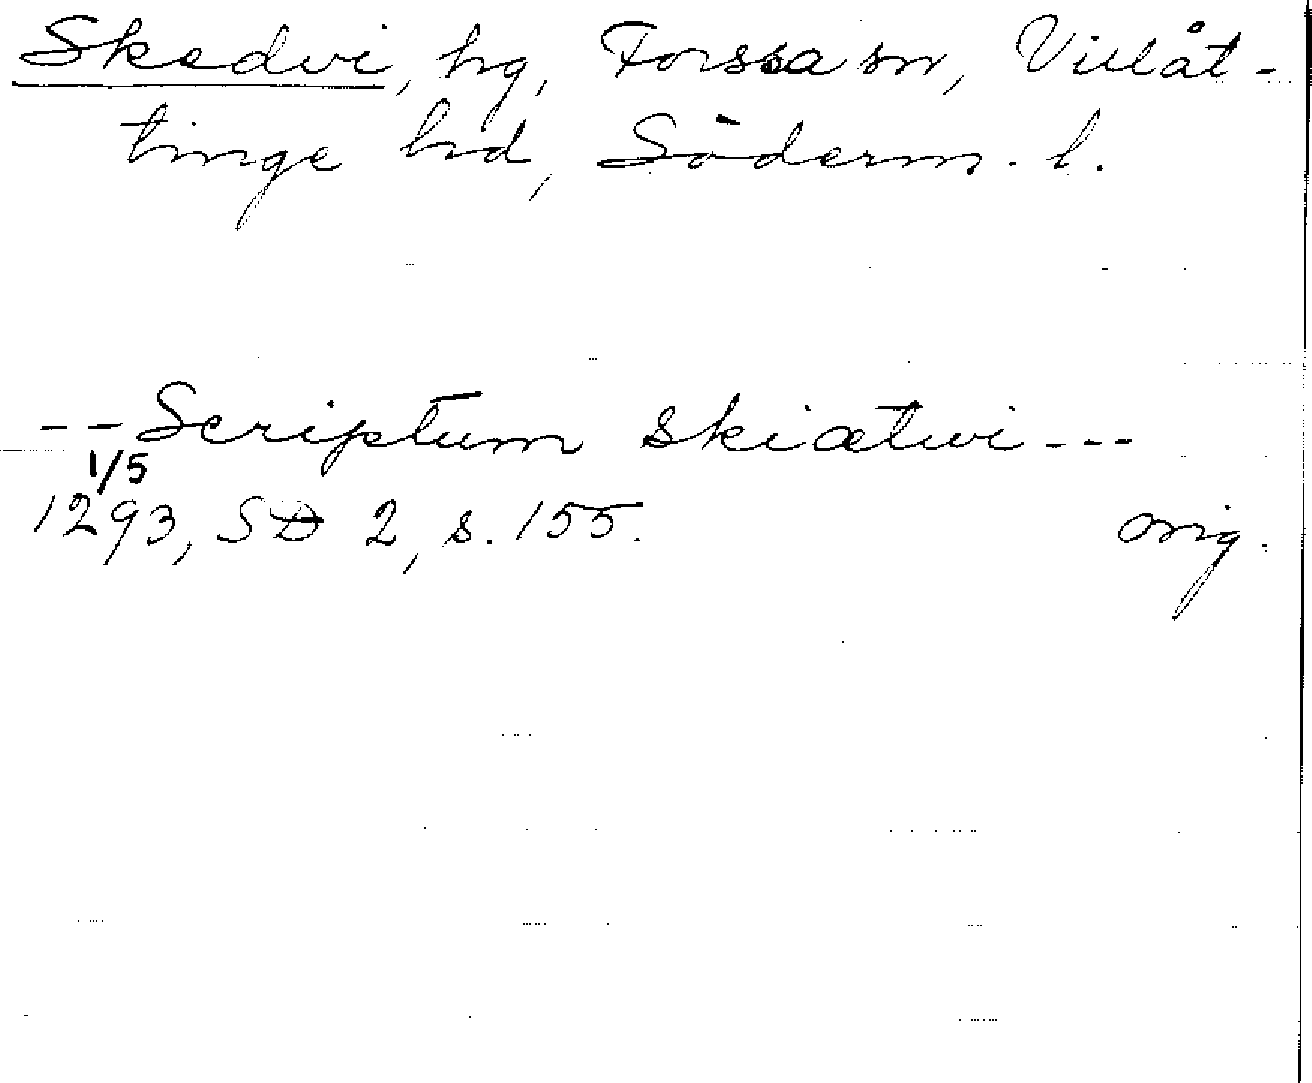 Skedvi, hg, Forssa sn, Villåt-
tinge hd, Söderm. l.
--Scriptum skiætwi---
1/5
1293, SD 2, s. 155. orig.